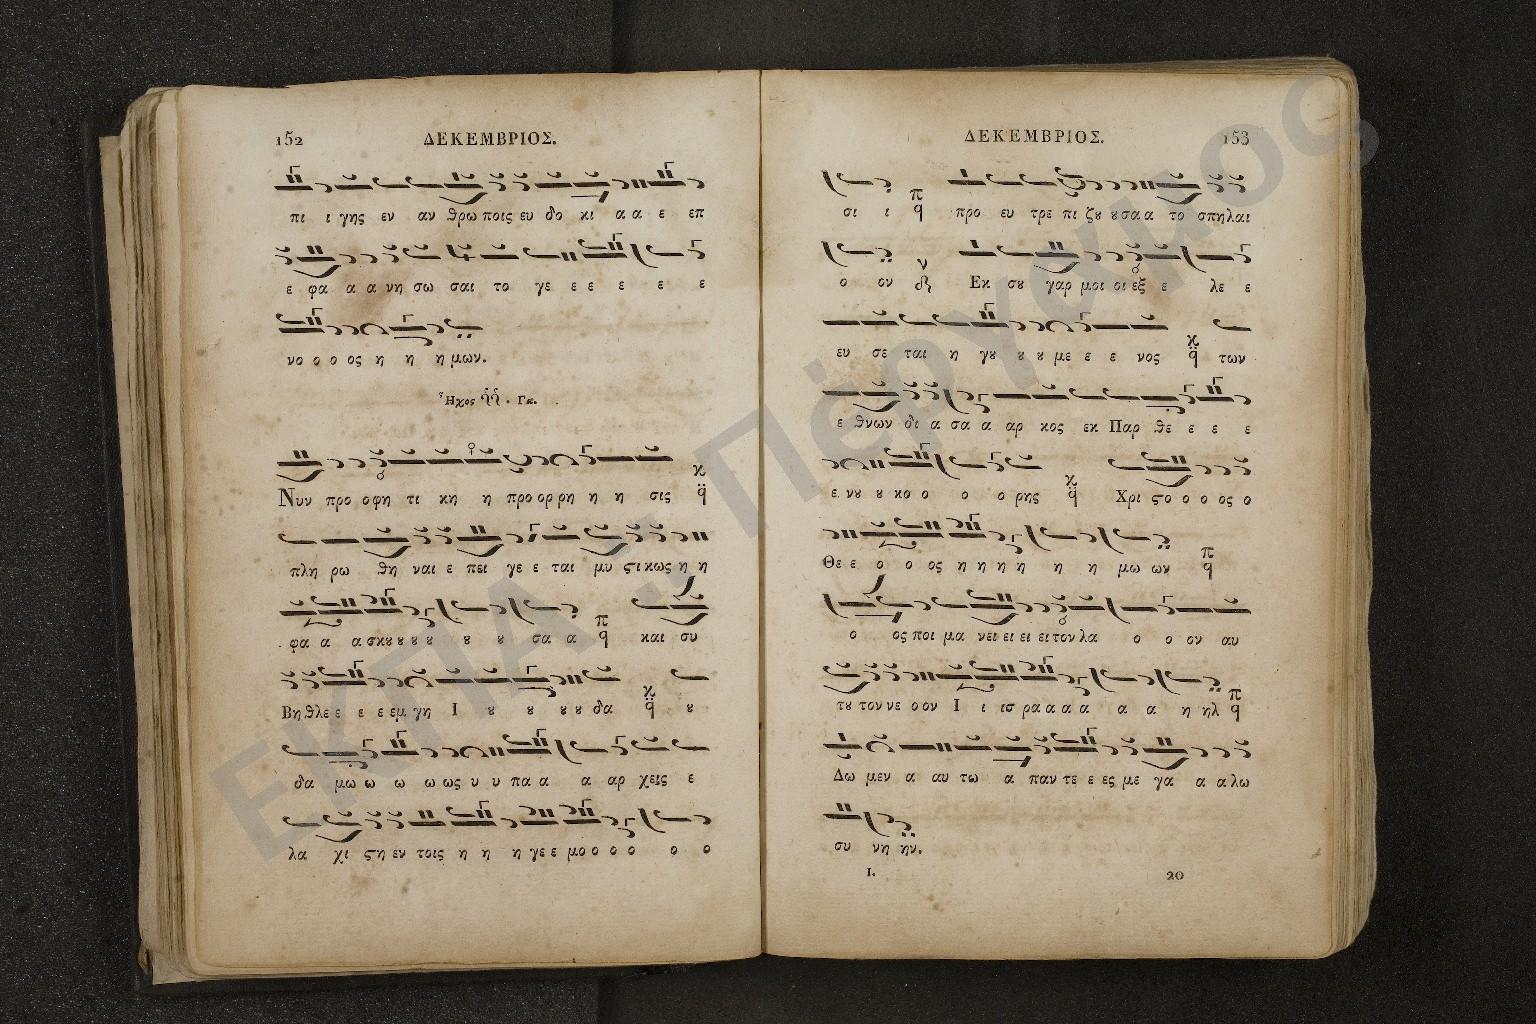 152 ΔΕΚΕΜΒΡΙΟΣ.
πι ι γης εν αν θρω ποις ευ δο κι α α ε επ
ε φα α α νη σω σαι το γε ε ε ε ε ε
νο ο ο ος η η η μων.
Ἦχος Γα.
Νυν προ ο φη τι κη η προ ορ ρη η η σις
πλη ρω θη ναι ε πει γε ε ται μυ ϛι κως η η
φα α α σκȣ ȣ ȣ ȣ ȣ ȣ σα α και συ
Βη θλε ε ε ε εμ γη Ι ȣ ȣ ȣ ȣ δα ȣ
δα μω ω ω ω ως υ υ πα α α αρ χεις ε
λα χι ϛη εν τοις η η η γε ε μο ο ο ο ο ο
ΔΕΚΕΜΒΡΙΟΣ. 153
σι ι προ ευ τρε πι ζȣ ȣ σα α το σπηλαι
ο ον Εκ σȣ γαρ μοι οι εξ ε λε ε
ευ σε ται η γȣ ȣ ȣ με ε ε νος των
ε θνων δι α σα α αρ κος εκ Παρ θε ε ε ε
ε νȣ ȣ κο ο ο ο ρης Χρι ϛο ο ο ος ο
Θε ε ο ο ος η η η η η η μω ων
ο ος ποι μα νει ει ει ει τον λα ο ο ον αυ
τȣ τον νε ο ον Ι ι ισ ρα α α α α α η ηλ
Δω μεν α αυ τω α παν τε ε ες με γα α α λω
συ νη ην.
Ι. 20
ΕΚΠΑ :: Πέργαμος